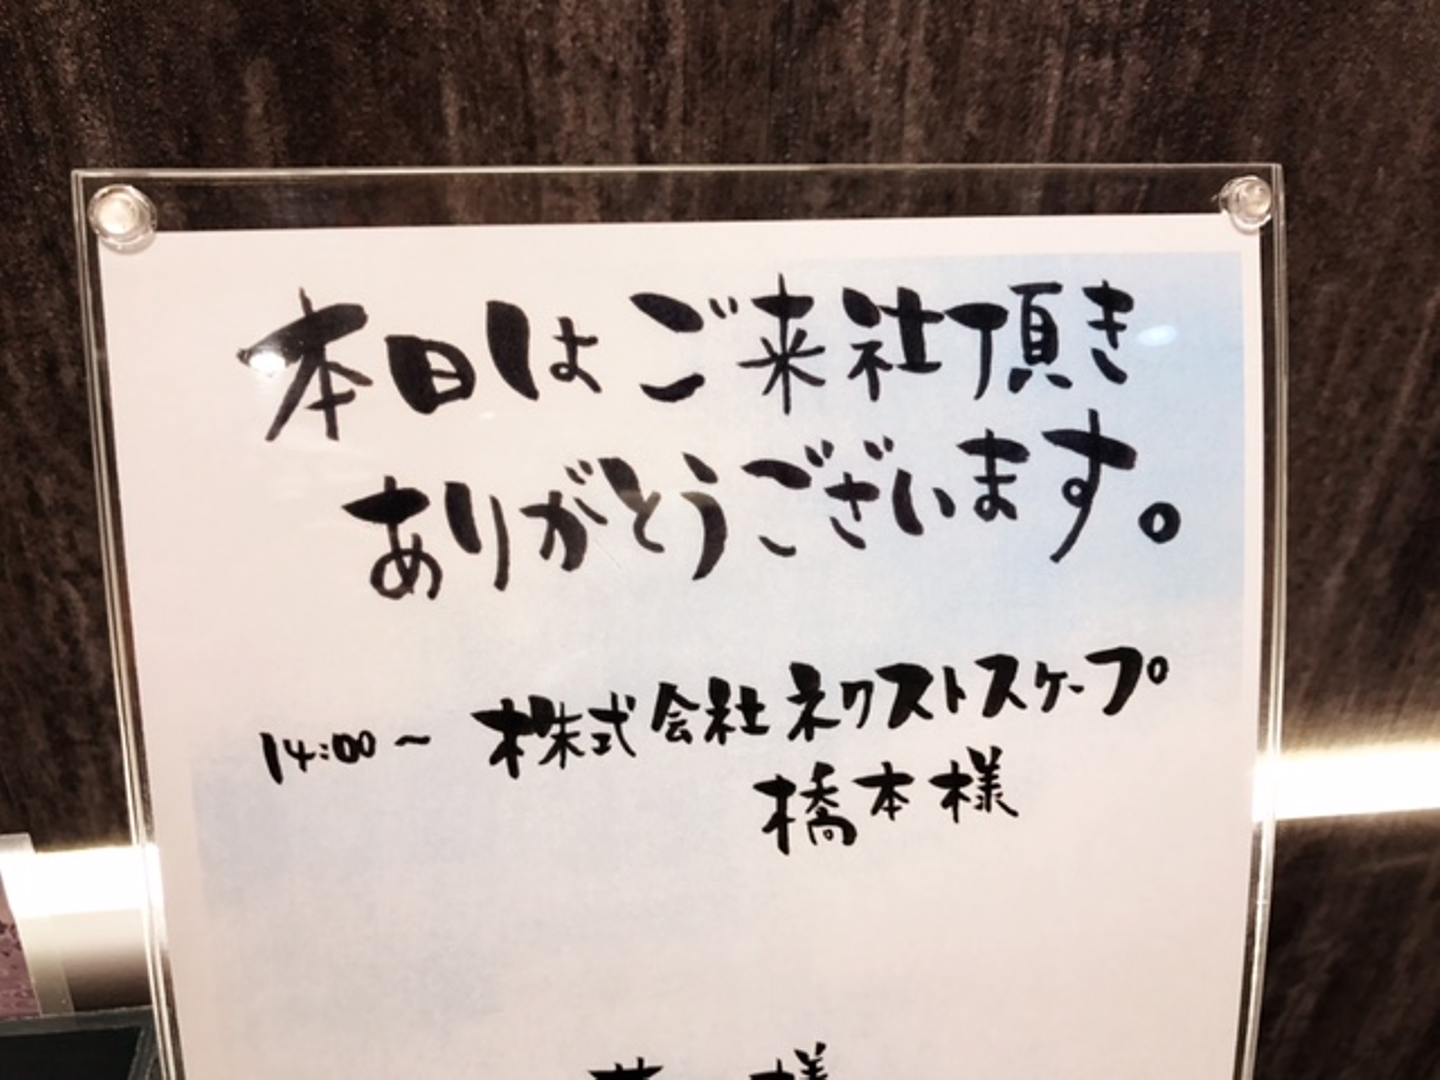 本日はご来社頂き
ありがとうございます。
14:00～ 株式会社ネクストスケープ
橋本様
様